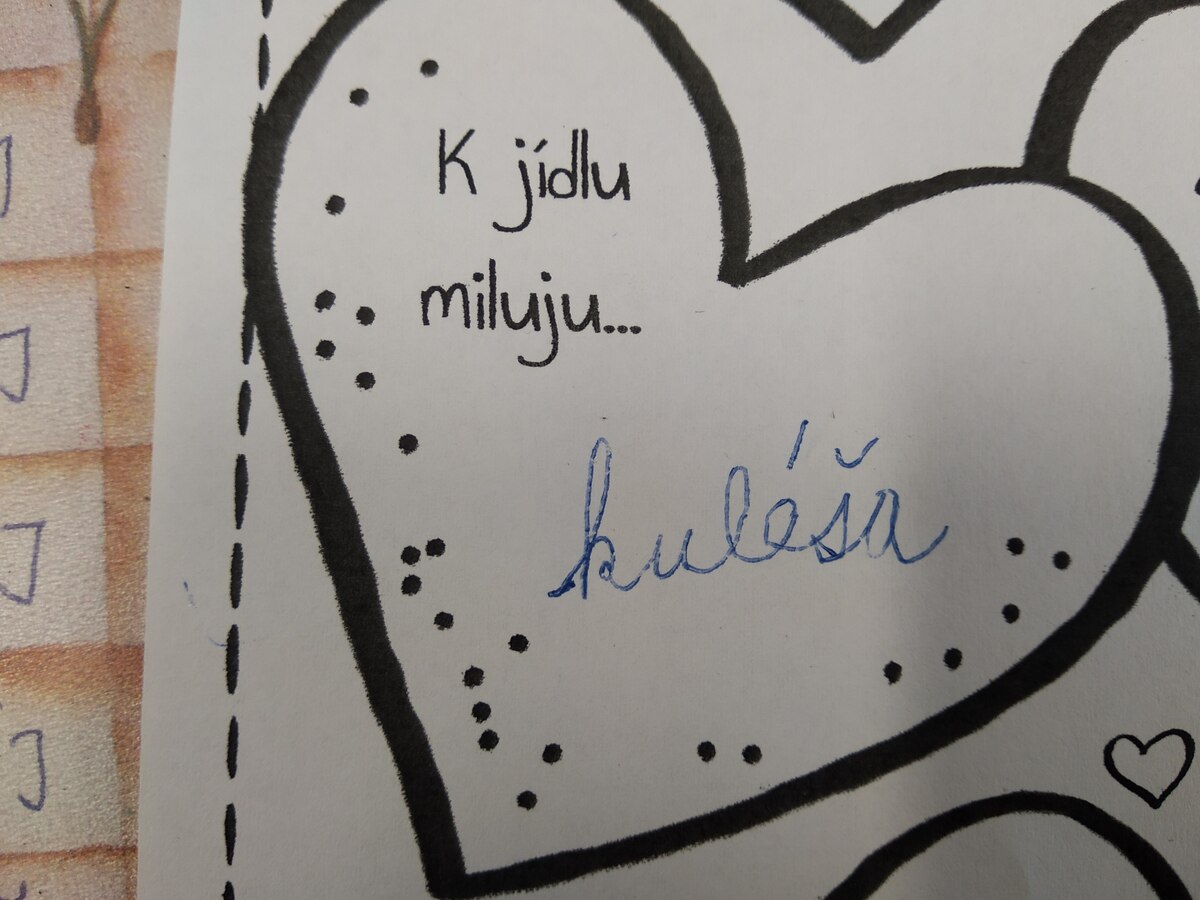 K jídlu
miluju...
kuléša